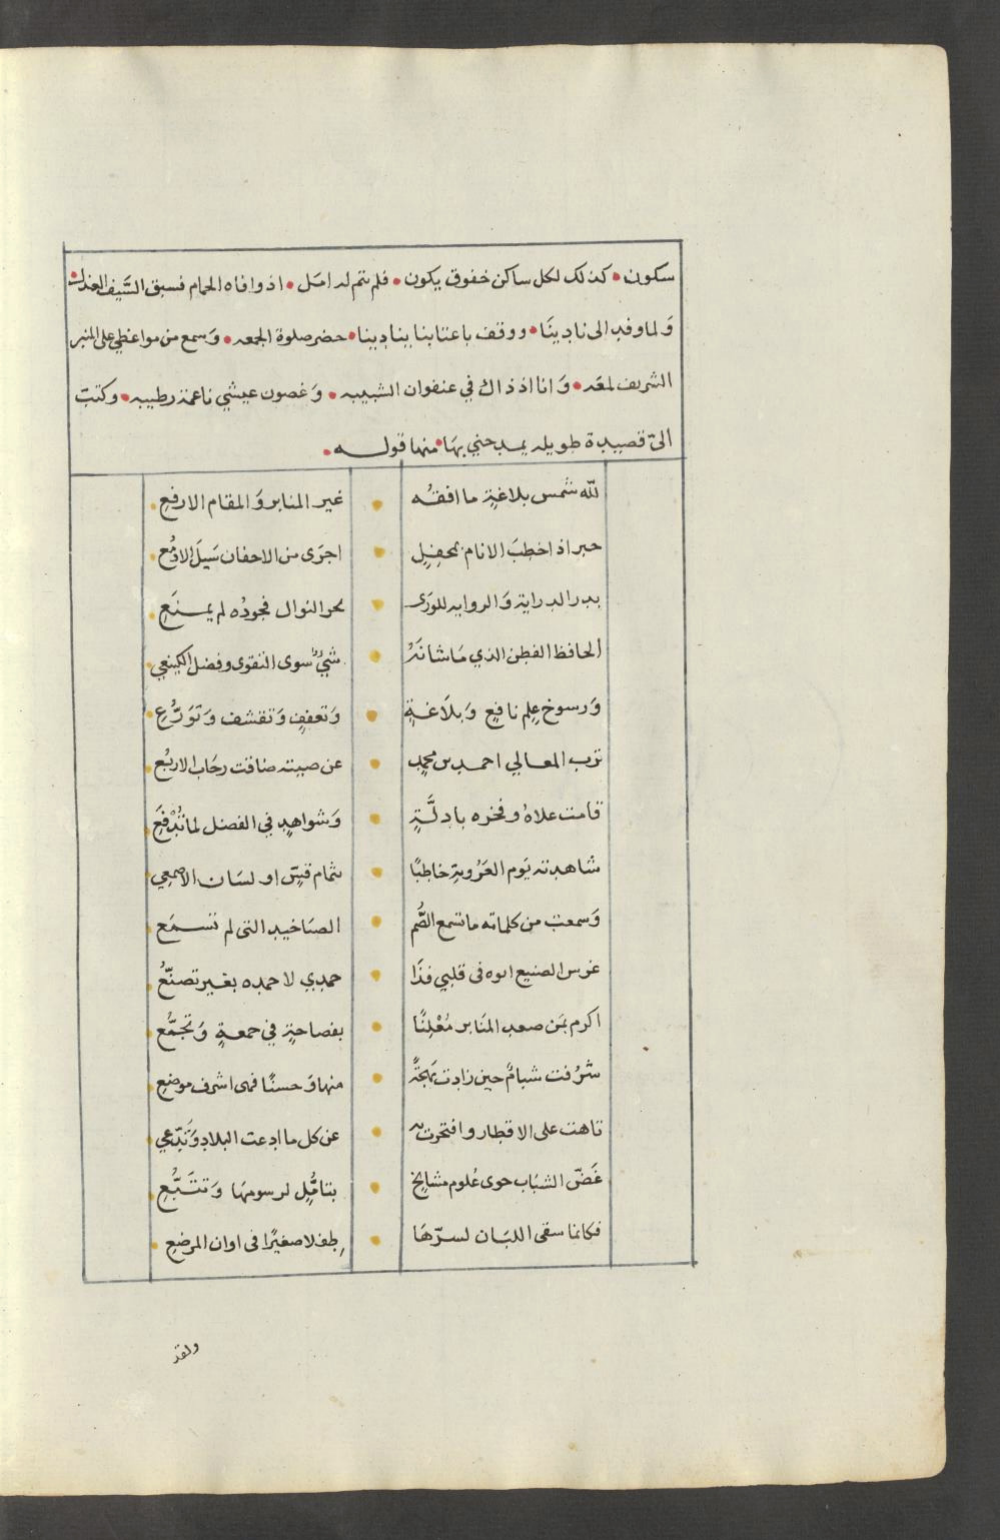 سكون • كذلك لكل ساكن خفوق يكون • فلم يتم له امَل • اذ وافاه الحمام فسبق السَّيف العذل •
وَلما وفد الى نادينَا • ووقف باعتابنا ينادينا • حضر صلوة الجمعه • وَسمع من مواعظي على المنبر
الشريف لمعَه • وَانا اذ ذاك في عنفوان الشبيبه • وَغصون عيشي ناعمة رطيبه • وكتبَ
الىّ قصيدة طويله يمدحني بهَا • منها قوله •
للّه شمس بلاغةٍ ما افقهُ • غير المنابر وَالمقام الارفعِ •
حبر اذا خطبَ الانام بمحفلٍ • اجرَى من الاجفان سَيلَ الادمُعِ •
بدر الدراية وَالروايه للوَرَى • بحر النوال فجودُه لم يمنَعِ •
الحافظ الفطن الذي مَا شانَهُ • شيءٌ سوى التقوى وفضل الكينعي •
وَرسوخ عِلمٍ نافعٍ وَبلَاغةٍ • وَتعففٍ وَتقشف وَتوَرُّعِ •
ترب المعالي احمد بن محمدٍ • عن صيته ضاقت رحَاب الاربُعِ •
قامت علاهُ وفخره بادلَّةٍ • وَشواهدٍ في الفضل لما تُدْفَعِ •
شاهدته يَوم العَرُوبةِ خاطبًا • بتمام قسٍّ او لسَان الاصمعِي •
وَسمعت من كلماته ما تسمع الصُّم • الصَاخيد التى لم تسمَعِ •
غرس الصنيع ابوه فى قلبي فذَا • حمدي لا حمده بغير تصنّعُ •
اكرم بمَن صعد المنَابر مُعْلِنًا • بفصاحةٍ في جمعةٍ وَتجمُّعِ •
شرُفت شبامٌ حين زادت بَهجَةً • منها وَحسنًا فهى اشرف موضعِ •
تاهت على الاقطار وافتخرت به • عن كل ما ادعت البلاد وَتَدّعي •
غَضّ الشبَاب حوى عُلوم مشايخٍ • بتامُّلٍ لرسومهَا وَتتَبُّعِ •
فكانما سقى اللبَان لسرّهَا • طفلا صغيرًا فى اوان المرضعِ •
ولقد